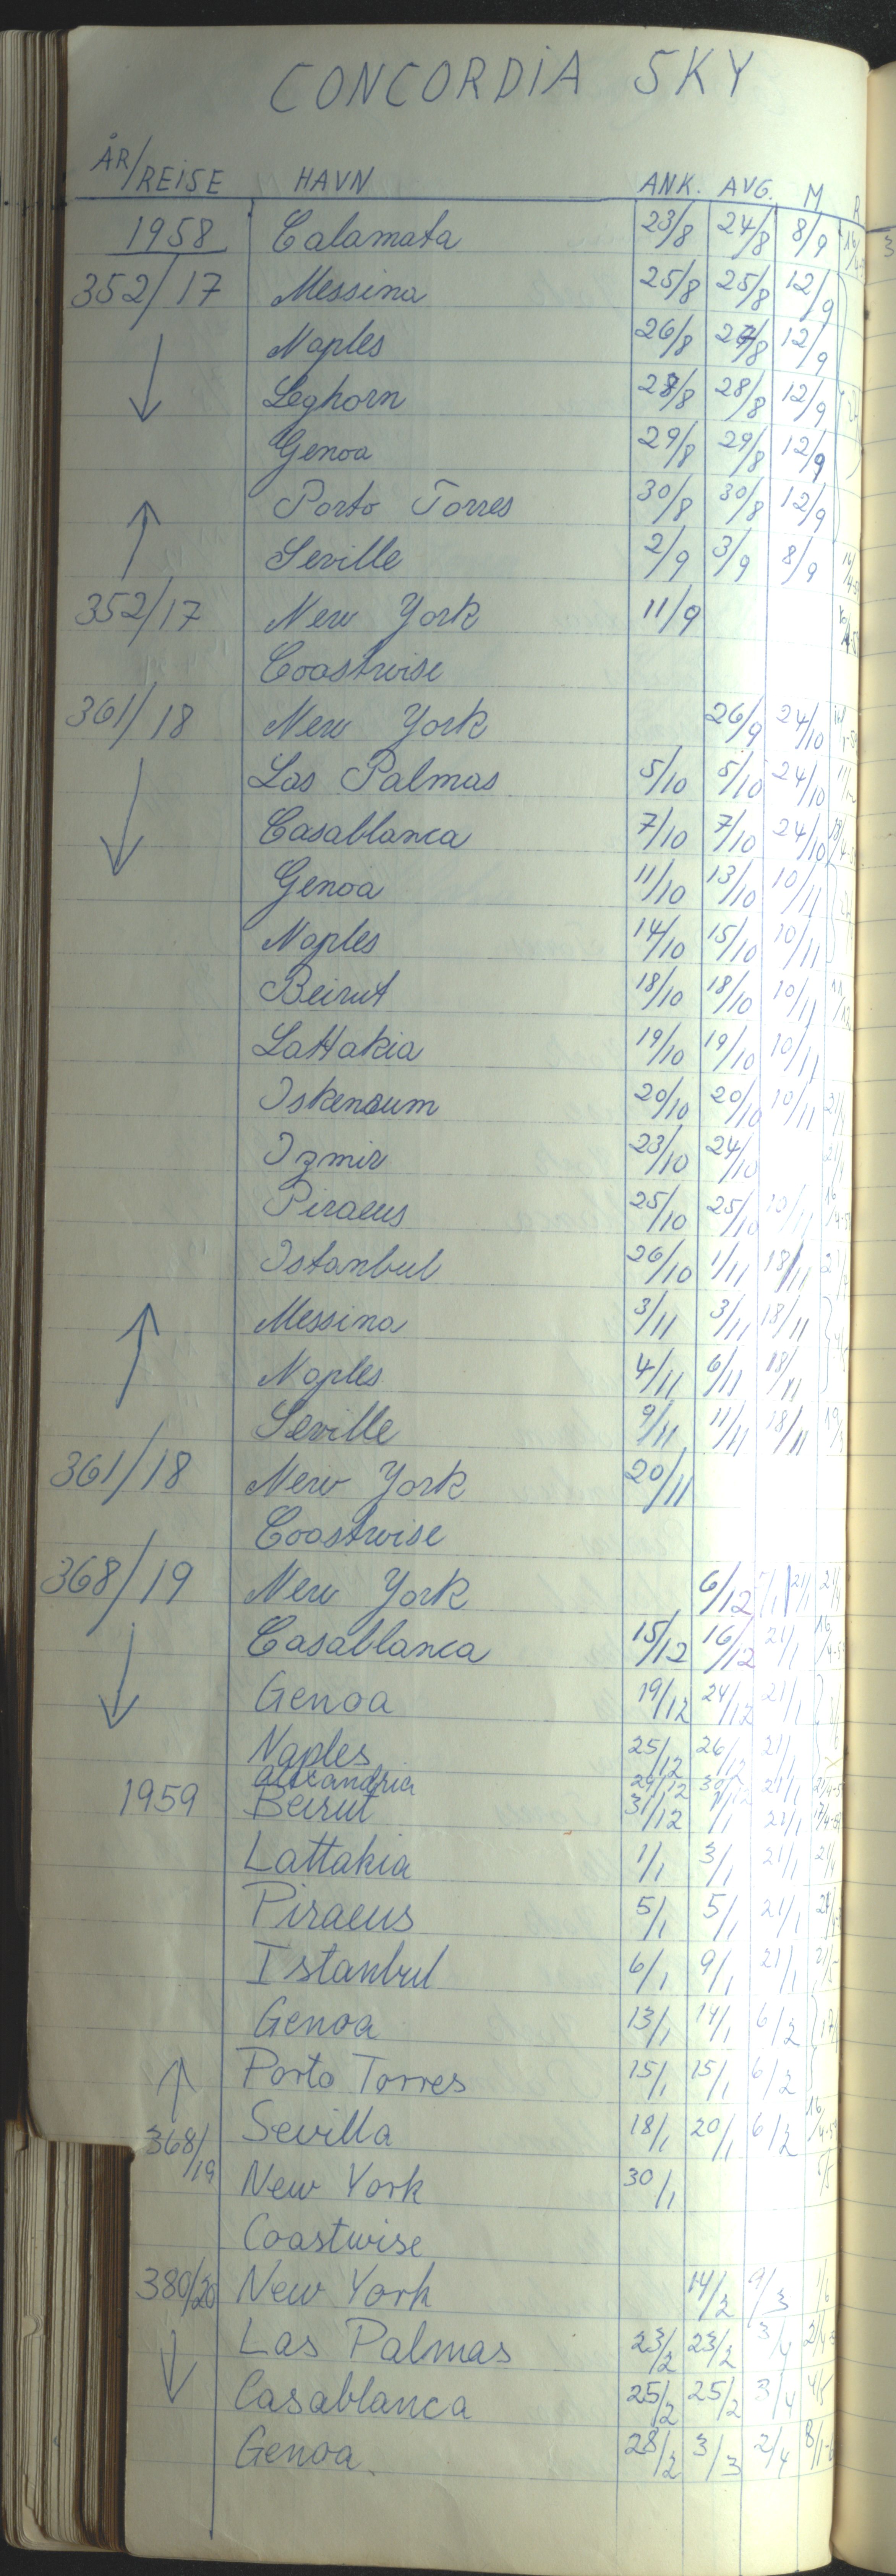 CONCORDIA SKY
ÅR/REISE HAVN ANK. AVG. M R
1958 Calamata 23/8 24/8 8/9
352/17 Messina 25/8 25/8 12/9
Naples 26/8 27/8 12/9
Leghorn 28/8 28/8 12/9
Genoa 29/8 29/8 12/9
Porto Torres 30/8 30/8 12/9
Seville 2/9 3/9 8/9
352/17 New York 11/9
Coastwise
361/18 New York 26/9 24/10
Las Palmas 5/10 5/10 24/10
Casablanca 7/10 7/10 24/10
Genoa 11/10 13/10 10/11
Naples 14/10 15/10 10/11
Beirut 18/10 18/10 10/11
Lattakia 19/10 19/10 10/11
Iskenderum 20/10 20/10 10/11
Izmir 23/10 24/10
Piraeus 25/10 25/10 10/11
Istanbul 26/10 1/11 18/11
Messina 3/11 3/11 18/11
Naples 4/11 6/11 18/11
Seville 9/11 11/11 18/11
361/18 New York 20/11
Coastwise
368/19 New York 6/12 21/1
Casablanca 15/12 16/12 21/1
Genoa 19/12 24/12 21/1
Naples 25/12 26/12 21/1
Alexandria 29/12 30/12 21/1
1959 Beirut 31/12 1/1 21/1
Lattakia 1/1 3/1 21/1
Piraeus 5/1 5/1 21/1
Istanbul 6/1 9/1 21/1
Genoa 13/1 14/1 6/2
Porto Torres 15/1 15/1 6/2
Sevilla 18/1 20/1 6/2
368/19 New York 30/1
Coastwise
380/20 New York 14/2 9/3
Las Palmas 23/2 23/2 3/4
Casablanca 25/2 25/2 3/4
Genoa 28/2 3/3 2/4